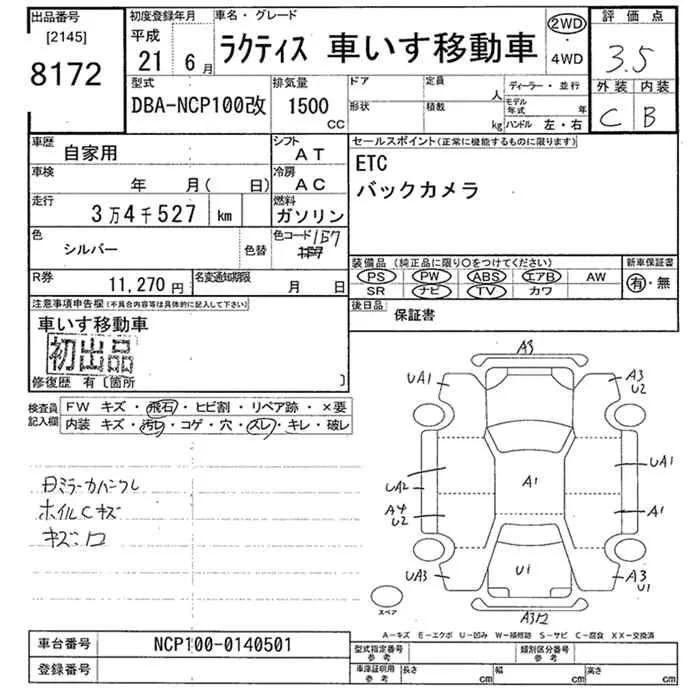 出品番号
[2145]
8172
初度登録年月
平成
21 6月
車名・グレード
ラクティス 車いす移動車
2WD
・
4WD
評価点
3.5
外装 内装
C B
型式
DBA-NCP100改
排気量
1500
CC
ドア
形状
定員
人
積載
kg
ディーラー・並行
モデル年式 年
ハンドル 左・右
車歴
自家用
シフト
AT
車検
年 月( 日)
冷房
AC
走行
3万4千527 km
燃料
ガソリン
色
シルバー
色替
色コード 1E7
R券
11,270円
名変通知期限
月 日
セールスポイント(正常に機能するものに限ります)
ETC
バックカメラ
装備品 (純正品に限り○をつけてください)
PS PW ABS エアB AW
SR ナビ TV カワ
新車保証書
有・無
後日品
保証書
注意事項申告欄(不具合内容等は具体的に記入して下さい)
車いす移動車
初出品
修復歴 有〔箇所 〕
検査員
記入欄
FW キズ・飛石・ヒビ割・リペア跡・×要
内装 キズ・汚レ・コゲ・穴・スレ・キレ・破レ
ホイルCキズ
A3
UA1
A3
U2
UA2
A4
U2
A1
UA1
A1
UA3
U1
A3
U1
A3 12
スペア
A-キズ E-エクボ U-凹み W-補修跡 S-サビ C-腐食 XX-交換済
車台番号
NCP100-0140501
登録番号
型式指定番号
参考
類別区分番号
参考
車庫証明用
参考
長さ cm
幅 cm
高さ cm